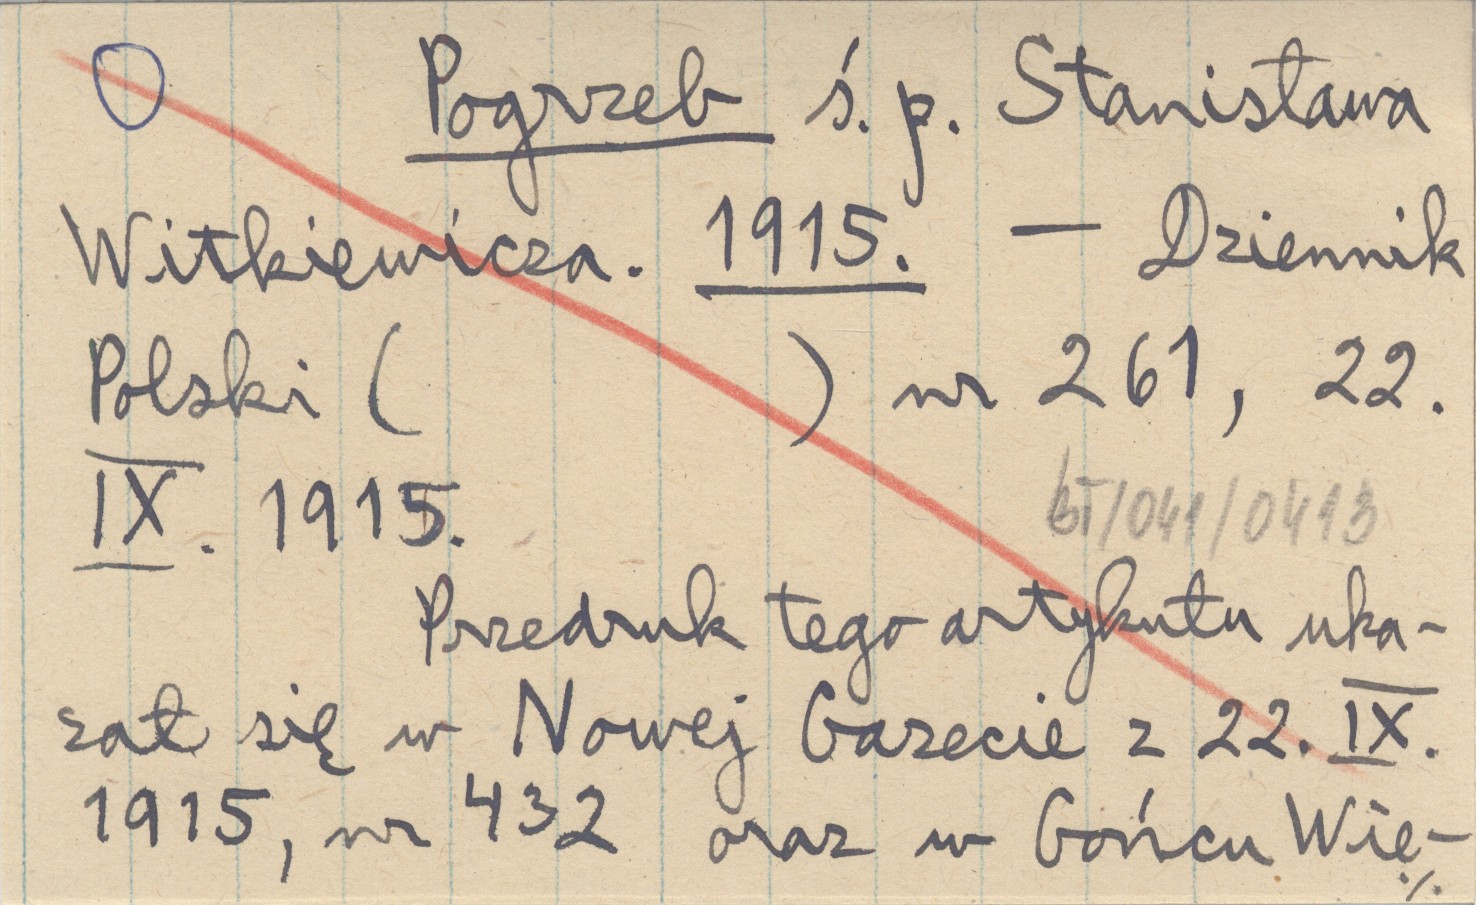 Pogrzeb ś. p. Stanisława
Witkiewicza. 1915. — Dziennik
Polski (                    ) nr 261, 22.
IX. 1915.
bī/041/0413
Przedruk tego artykułu uka-
zał się w Nowej Gazecie z 22. IX.
1915, nr 432 oraz w Gońcu Wię-
./.